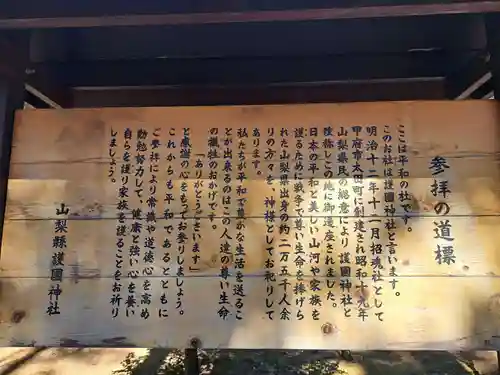 参拝の道標
ここは平和の杜です。
このお社は護國神社と言います。
明治十二年十一月招魂社として
甲府市太田町に創建され昭和十九年
山梨県民の総意により護國神社と
改称しこの地に御遷座されました。
日本の平和と美しい山河や家族を
護るために戦争で尊い生命を捧げら
れた山梨県出身の約二万五千人余
りの方々を、神様としてお祀りして
あります。
私たちが平和で豊かな生活を送るこ
とが出来るのはこの人達の尊い生命
の犠牲のおかげです。
「ありがとうございます」
と感謝の心をもってお参りしましょう。
これからも平和であるとともに
ご参拝により常識や道徳心を高め
勤勉努力して、健康と強い心を養い
自らを護り家族を護ることをお祈り
しましょう。
山梨縣護國神社